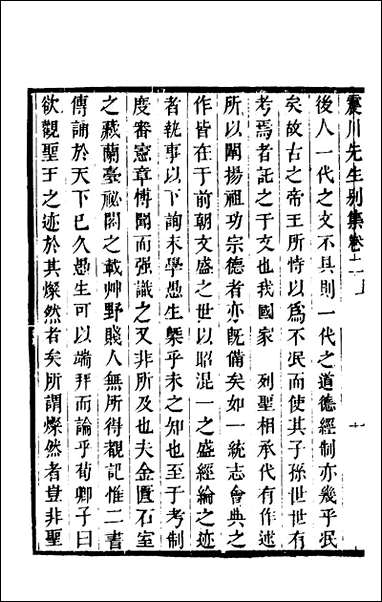 震川先生別集卷二上
後人一代之文不具則一代之道德經制亦幾乎泯
矣故古之帝王所恃以爲不泯而使其子孫世世有
考焉者託之于文也我國家 列聖相承代有作述
所以闡揚祖功宗德者亦旣備矣如一統志會典之
作皆在于前朝文盛之世以昭混一之盛經綸之迹
者執事以下詢末學愚生槩乎未之知也至于考制
度審憲章博聞而强識之又非所及也夫金匱石室
之藏蘭臺祕閣之載艸野賤人無所得觀記惟二書
傳誦於天下已久愚生可以端拜而論乎荀卿子曰
欲觀聖王之迹於其燦然者矣所謂燦然者豈非聖